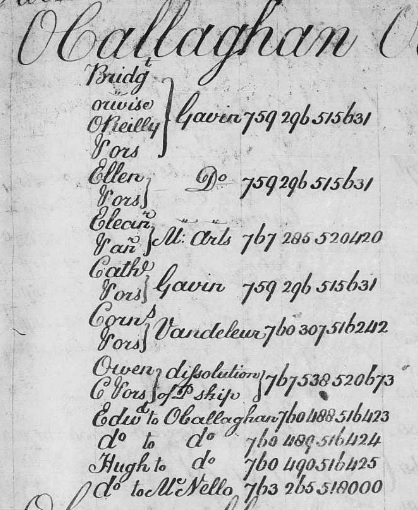 OCallaghan
Bridgt
orwise
OReilly } Gavin 759 296 515631
& ors
Ellen
& ors } Do 759 296 515631
Eleanr
& anr } Mc Arts 767 285 520420
Cathe
& ors } Gavin 759 296 515631
Corns
& ors } Vandeleur 760 307 516242
Owen } dissolution
& ors } of Pship } 767 538 520673
Edwd to OCallaghan 760 488 516423
do to do 760 489 516424
Hugh to do 760 490 516425
do to McNello 763 265 518000